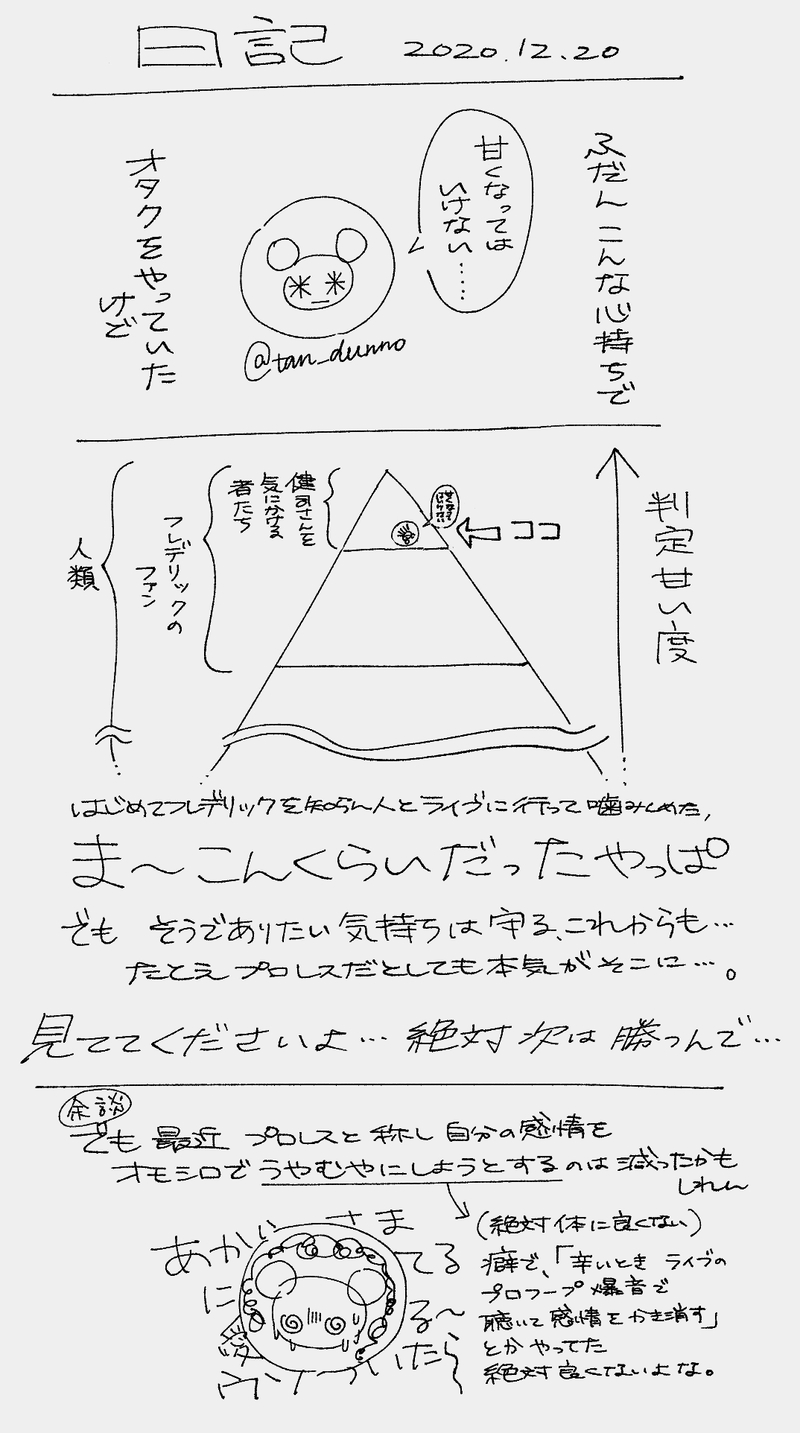 日記 2020.12.20
ふだん こんな心持ちで
甘くなっては
いけない……
@tan_dunno
オタクをやっていた
けど
判定甘い度
ココ
甘くなっては
いけない
健司さんを
気にかける
者たち
フレデリックの
ファン
人類
はじめてフレデリックを知らん人とライヴに行って噛みしめた,
ま〜こんくらいだったやっぱ
でも そうでありたい気持ちは守る、これからも…
たとえプロレスだとしても本気がそこに…。
見ててくださいよ… 絶対次は勝つんで…
余談
でも最近 プロレスと称し自分の感情を
オモシロでうやむやにしようとするのは減ったかも
しれん
(絶対体に良くない)
癖で、「辛いとき ライヴの
プロフープ爆音で
聴いて感情をかき消す」
とかやってた
絶対良くないよな。
あかい さま
にてる
る〜
愛
ウソついたら